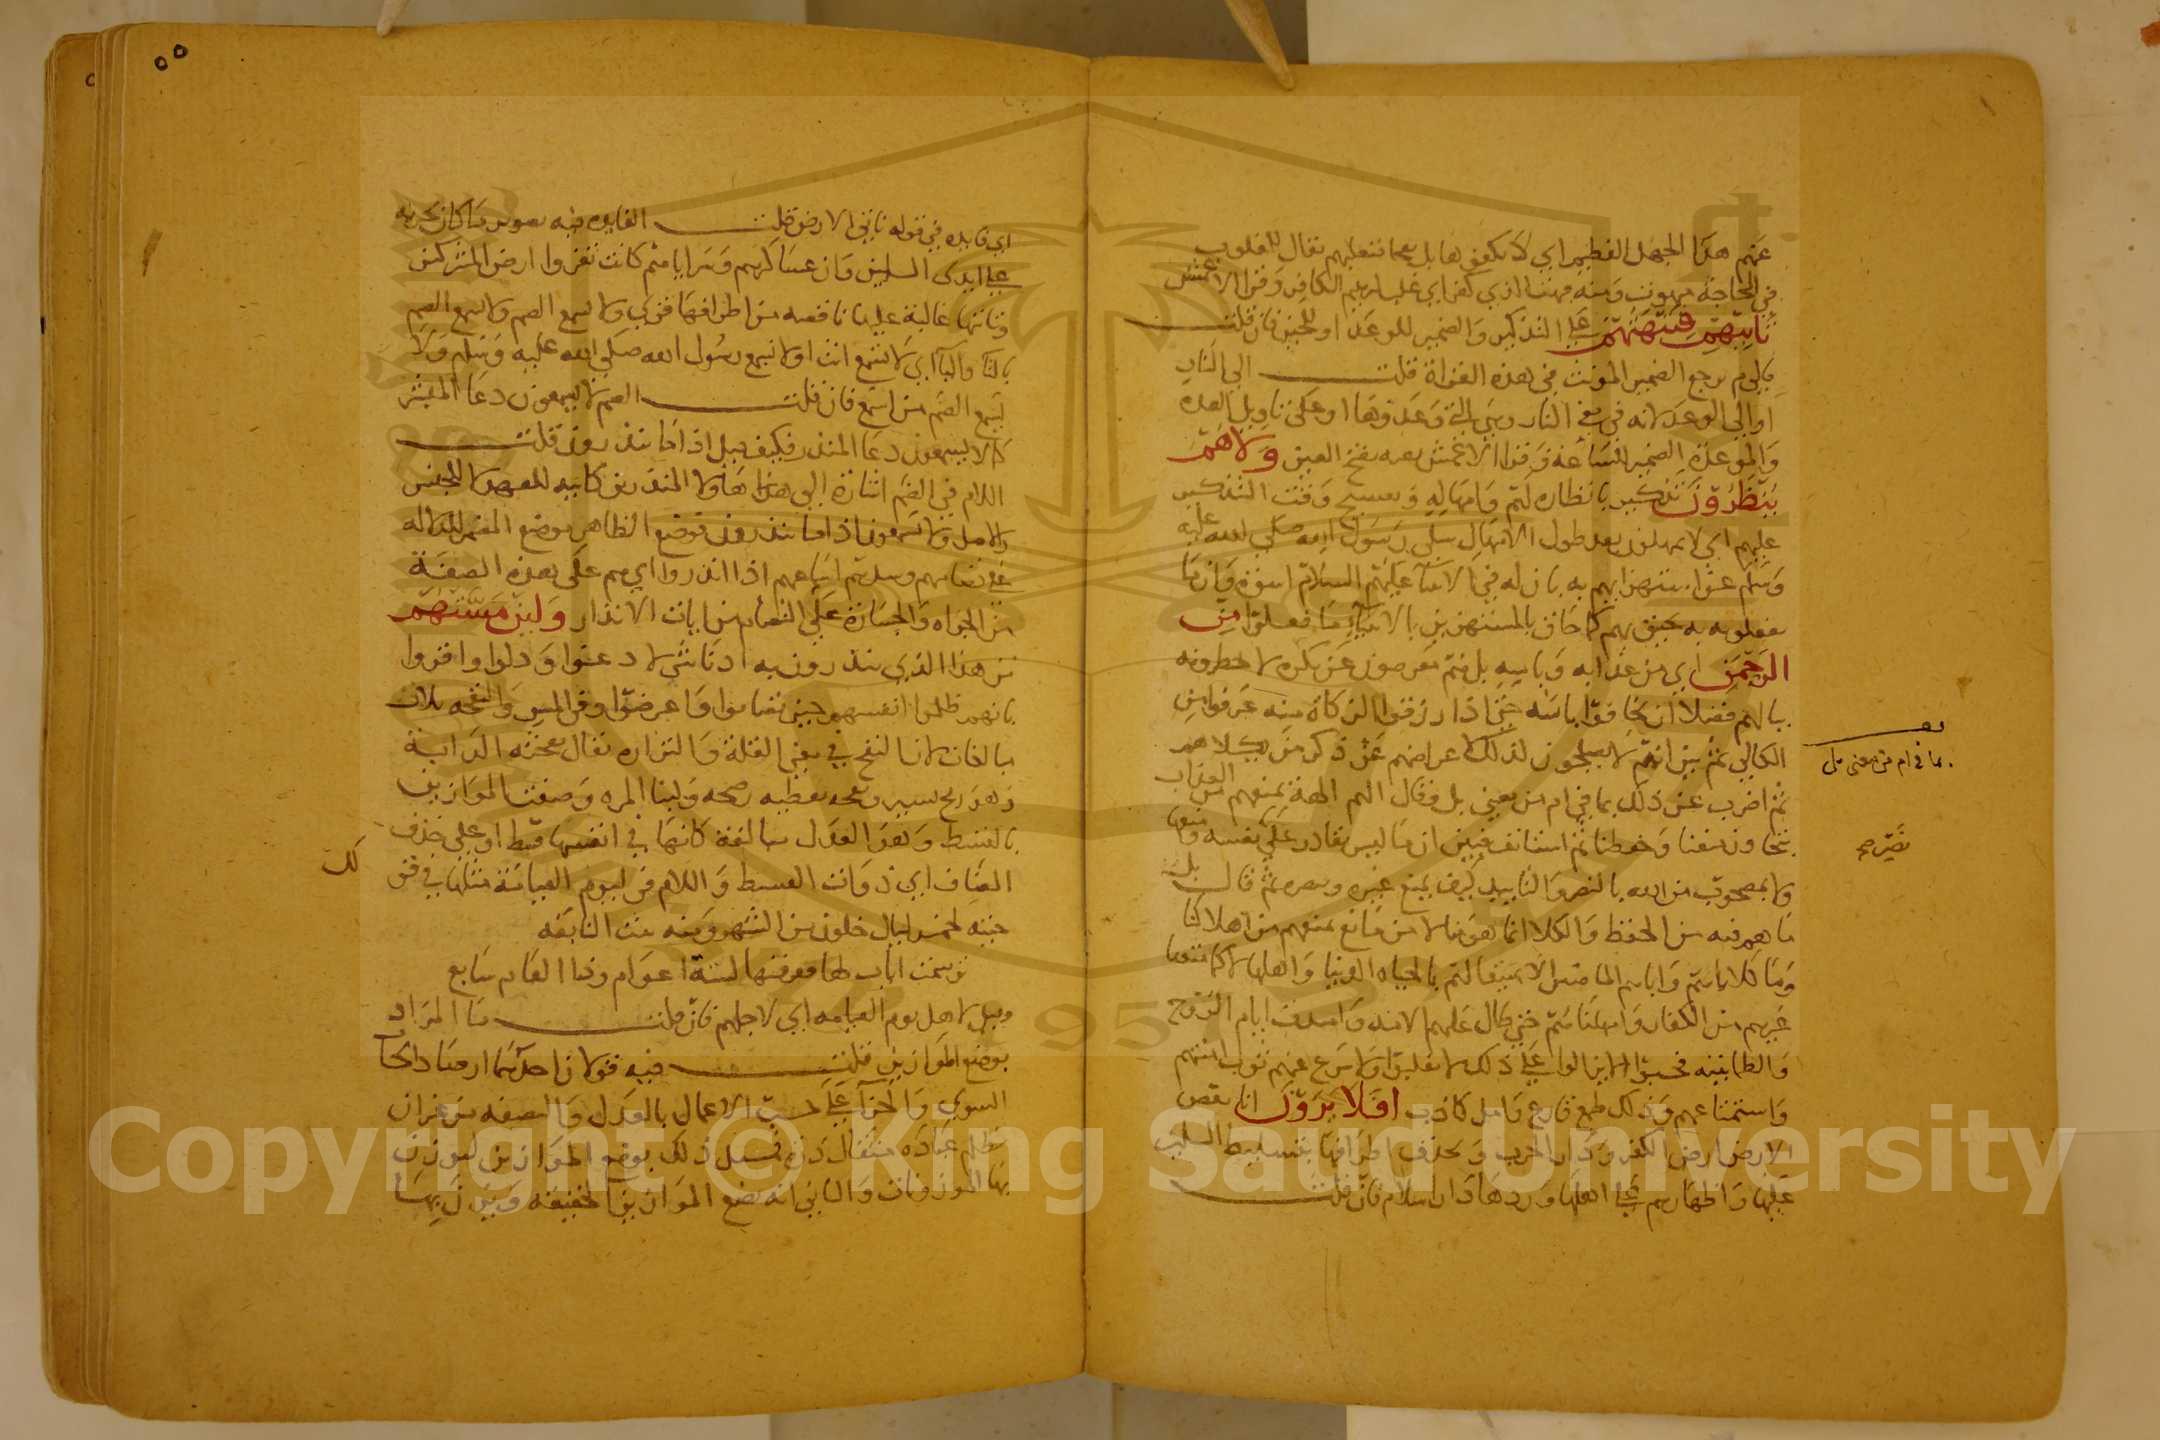 عنهم هذا الجهل العظيم اي لا يكفونها بل تفجاهم فتغلبهم يقال للمغلوب
في المحاجة مبهوت ومنه فبهت الذي كفر اي غلب ابراهيم الكافر وقرا الاعمش
يأتيهم فيبهتهم على التذكير والضمير للوعد او للحين فان قلت
فالي م يرجع الضمير المونث في هذه القراة قلت الى النار
او الى الوعد لانه في معنى النار وهي التي وعدوها او على تاويل العدة
والموعدة الضمير للساعة وقرا الاعمش بغته بفتح الغين ولا هم
ينظرون تذكير بانظاره لهم وامهاله وتفسيح وقت التذكير
عليهم اي لا يمهلون بعد طول الامهال سلى رسول الله صلى الله عليه
وسلم عن استهزايهم به بان له في الانبيآ عليهم السلام اسوة وان ما
يفعلونه به يحيق بهم كما حاق بالمستهزئين بالانبيآء ما فعلوا من
الرحمن اي من عذابه وباسه بل هم معرضون عن ذكره لا يخطرونه
ببالهم فضلا ان يخافوا باسه حتى اذا رزقوا الكلاة منه عرفوا من
الكالئ ثم بين انهم لا يصلحون لذلك لاعراضهم عن ذكر من يكلاهم
ثم اضرب عن ذلك بما في ام من معنى بل وقال الهم الهة تمنعهم من العذاب
تتجاوز منعنا وحفظنا ثم استانف فبين ان ما ليس بقادر على نفسه ومنعها
ولا بمصحوب من الله بالنصر والتاييد كيف يمنع غيره وينصره ثم قال بل
ما هم فيه من الحفظ والكلاة انما هو منا لا من مانع يمنعهم من اهلاكنا
وما كلاناهم واباهم الماضين الا تمتيعا لهم بالحياة الدنيا وامهالا كما متعنا
غيرهم من الكفار وامهلناهم حتى طال عليهم الامد وامتدت ايام الروح
والطمانينة فحسبوا ان لا يزالوا على ذلك لا يغلبوا ولا ينزع عنهم ثوب امنهم
واستمتاعهم وذلك طمع فارغ وامل كاذب افلا يرون انا ننقص
الارض ارض الكفر ودار الحرب ونحذف اطرافها بتسليط المسلمين
عليها واظهارهم على اهلها وردها دار اسلام فان قلت
بما في ام من معنى بل
اي فايدة في قوله ناتي الارض قلت الفايدة فيه تصوير ما كان يجريه
على ايدى المسلمين وان عساكرهم وسراياهم كانت تغزوا ارض المشركين
وتاتيها غالبة عليها ناقصة من اطرافها قرئ ولا يسمع الصم ولا تسمع الصم
بالتا واليا اي لا تسمع انت او لا يسمع رسول الله صلى الله عليه وسلم ولا
يسمع الصم من اسمع فان قلت الصم لا يسمعون دعا المبشر
كما لا يسمعون دعا المنذر فكيف قيل اذا ما ينذرون قلت
اللام في الصم اشارة الى هؤلا المنذرين كاينة للعهد لا للجنس
والاصل ولا يسمعون اذا ما ينذرون فوضع الظاهر موضع المضمر للدلالة
على تصامهم وسدهم اسماعهم اذا انذروا اي هم على هذه الصفة
من الجراة والجسارة على التصام من ايات الانذار ولئن مستهم
من هذا الذي ينذرون به ادنا شي لا ذعنوا وذلوا واقروا
بانهم ظلموا انفسهم حين تصاموا واعرضوا وفي المس والنفحة ثلاث
مبالغات لان النفح في معنى القلة والنزارة يقال نفحته الدابة
وهو رمح يسير ونفحه بعطية رضخه ولبنا المرة وصفت الموازين
بالقسط وهو العدل مبالغة كانها في انفسها قسط او على حذف
المضاف اي ذوات القسط واللام في ليوم القيامة مثلها في قولك
جيته لخمس ليال خلون من الشهر ومنه بيت النابغة
توسمت ايات لها فعرفتها لستة اعوام وذا العام سابع
وقيل لاهل يوم القيامه اي لاجلهم فان قلت ما المراد
بوضع الموازين قلت فيه قولان احدهما ارصاد الحساب
السوي والجزآ على حسب الاعمال بالعدل والنصفه من غير ان
يظلم عباده مثقال ذرة فمثل ذلك بوضع الموازين ليوزن
بها الموزونات والثاني انه يضع الموازين الحقيقية ويزن بها
Copyright © King Saud University
1957